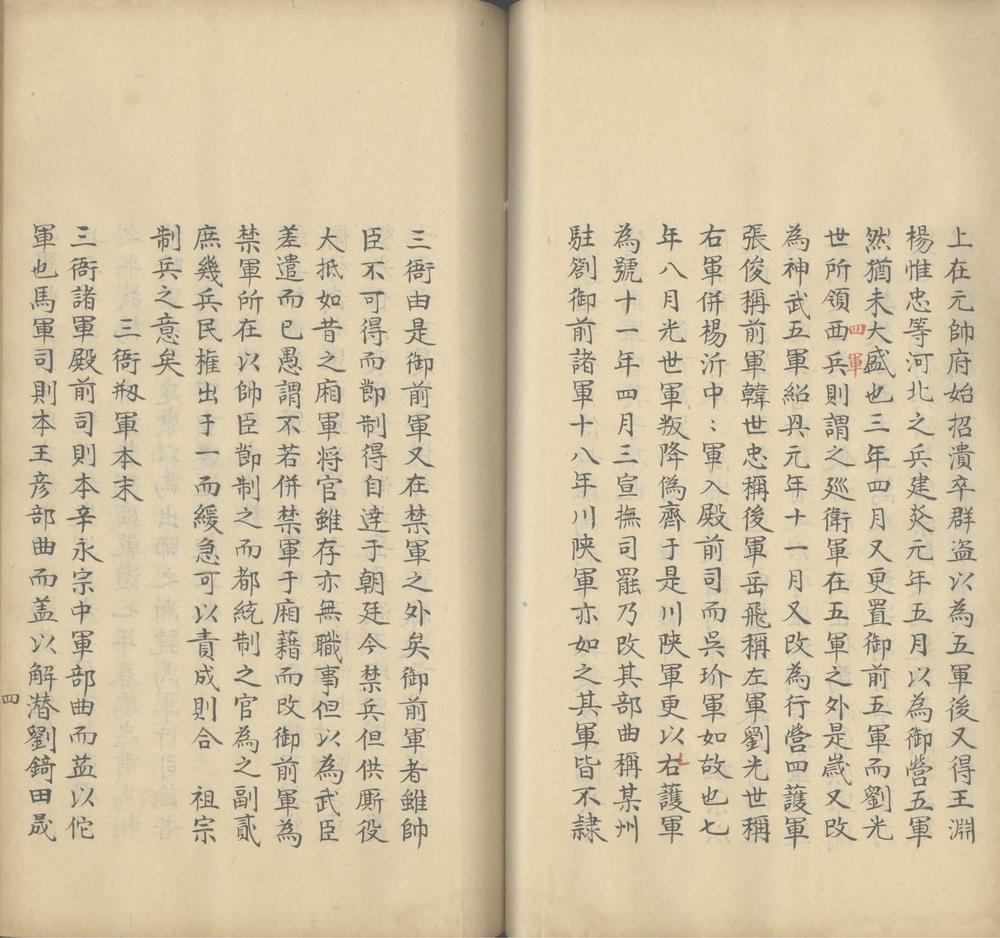 上在元帥府始招潰卒群盜以為五軍後又得王淵
楊惟忠等河北之兵建炎元年五月以為御營五軍
然猶未大盛也三年四月又更置御前五軍而劉光
世所領西兵則謂之廵衛軍在五軍之外是歲又改
四軍
為神武五軍紹興元年十一月又改為行營四護軍
張俊稱前軍韓世忠稱後軍岳飛稱左軍劉光世稱
右軍併楊沂中〻軍入殿前司而吳玠軍如故也七
年八月光世軍叛降僞齊于是川陝軍更以右護軍
為號十一年四月三宣撫司罷乃改其部曲稱某州
駐劄御前諸軍十八年川陝軍亦如之其軍皆不隷
三衙由是御前軍又在禁軍之外矣御前軍者雖帥
臣不可得而節制得自達于朝廷今禁兵但供厮役
大抵如昔之廂軍將官雖存亦無職事但以為武臣
差遣而已愚謂不若併禁軍于廂藉而改御前軍為
禁軍所在以帥臣節制之而都統制之官為之副貳
庶幾兵民權出于一而緩急可以責成則合　祖宗
制兵之意矣
三衙剏軍本末
三衙諸軍殿前司則本辛永宗中軍部曲而益以佗
軍也馬軍司則本王彦部曲而盖以解潛劉錡田晟
四